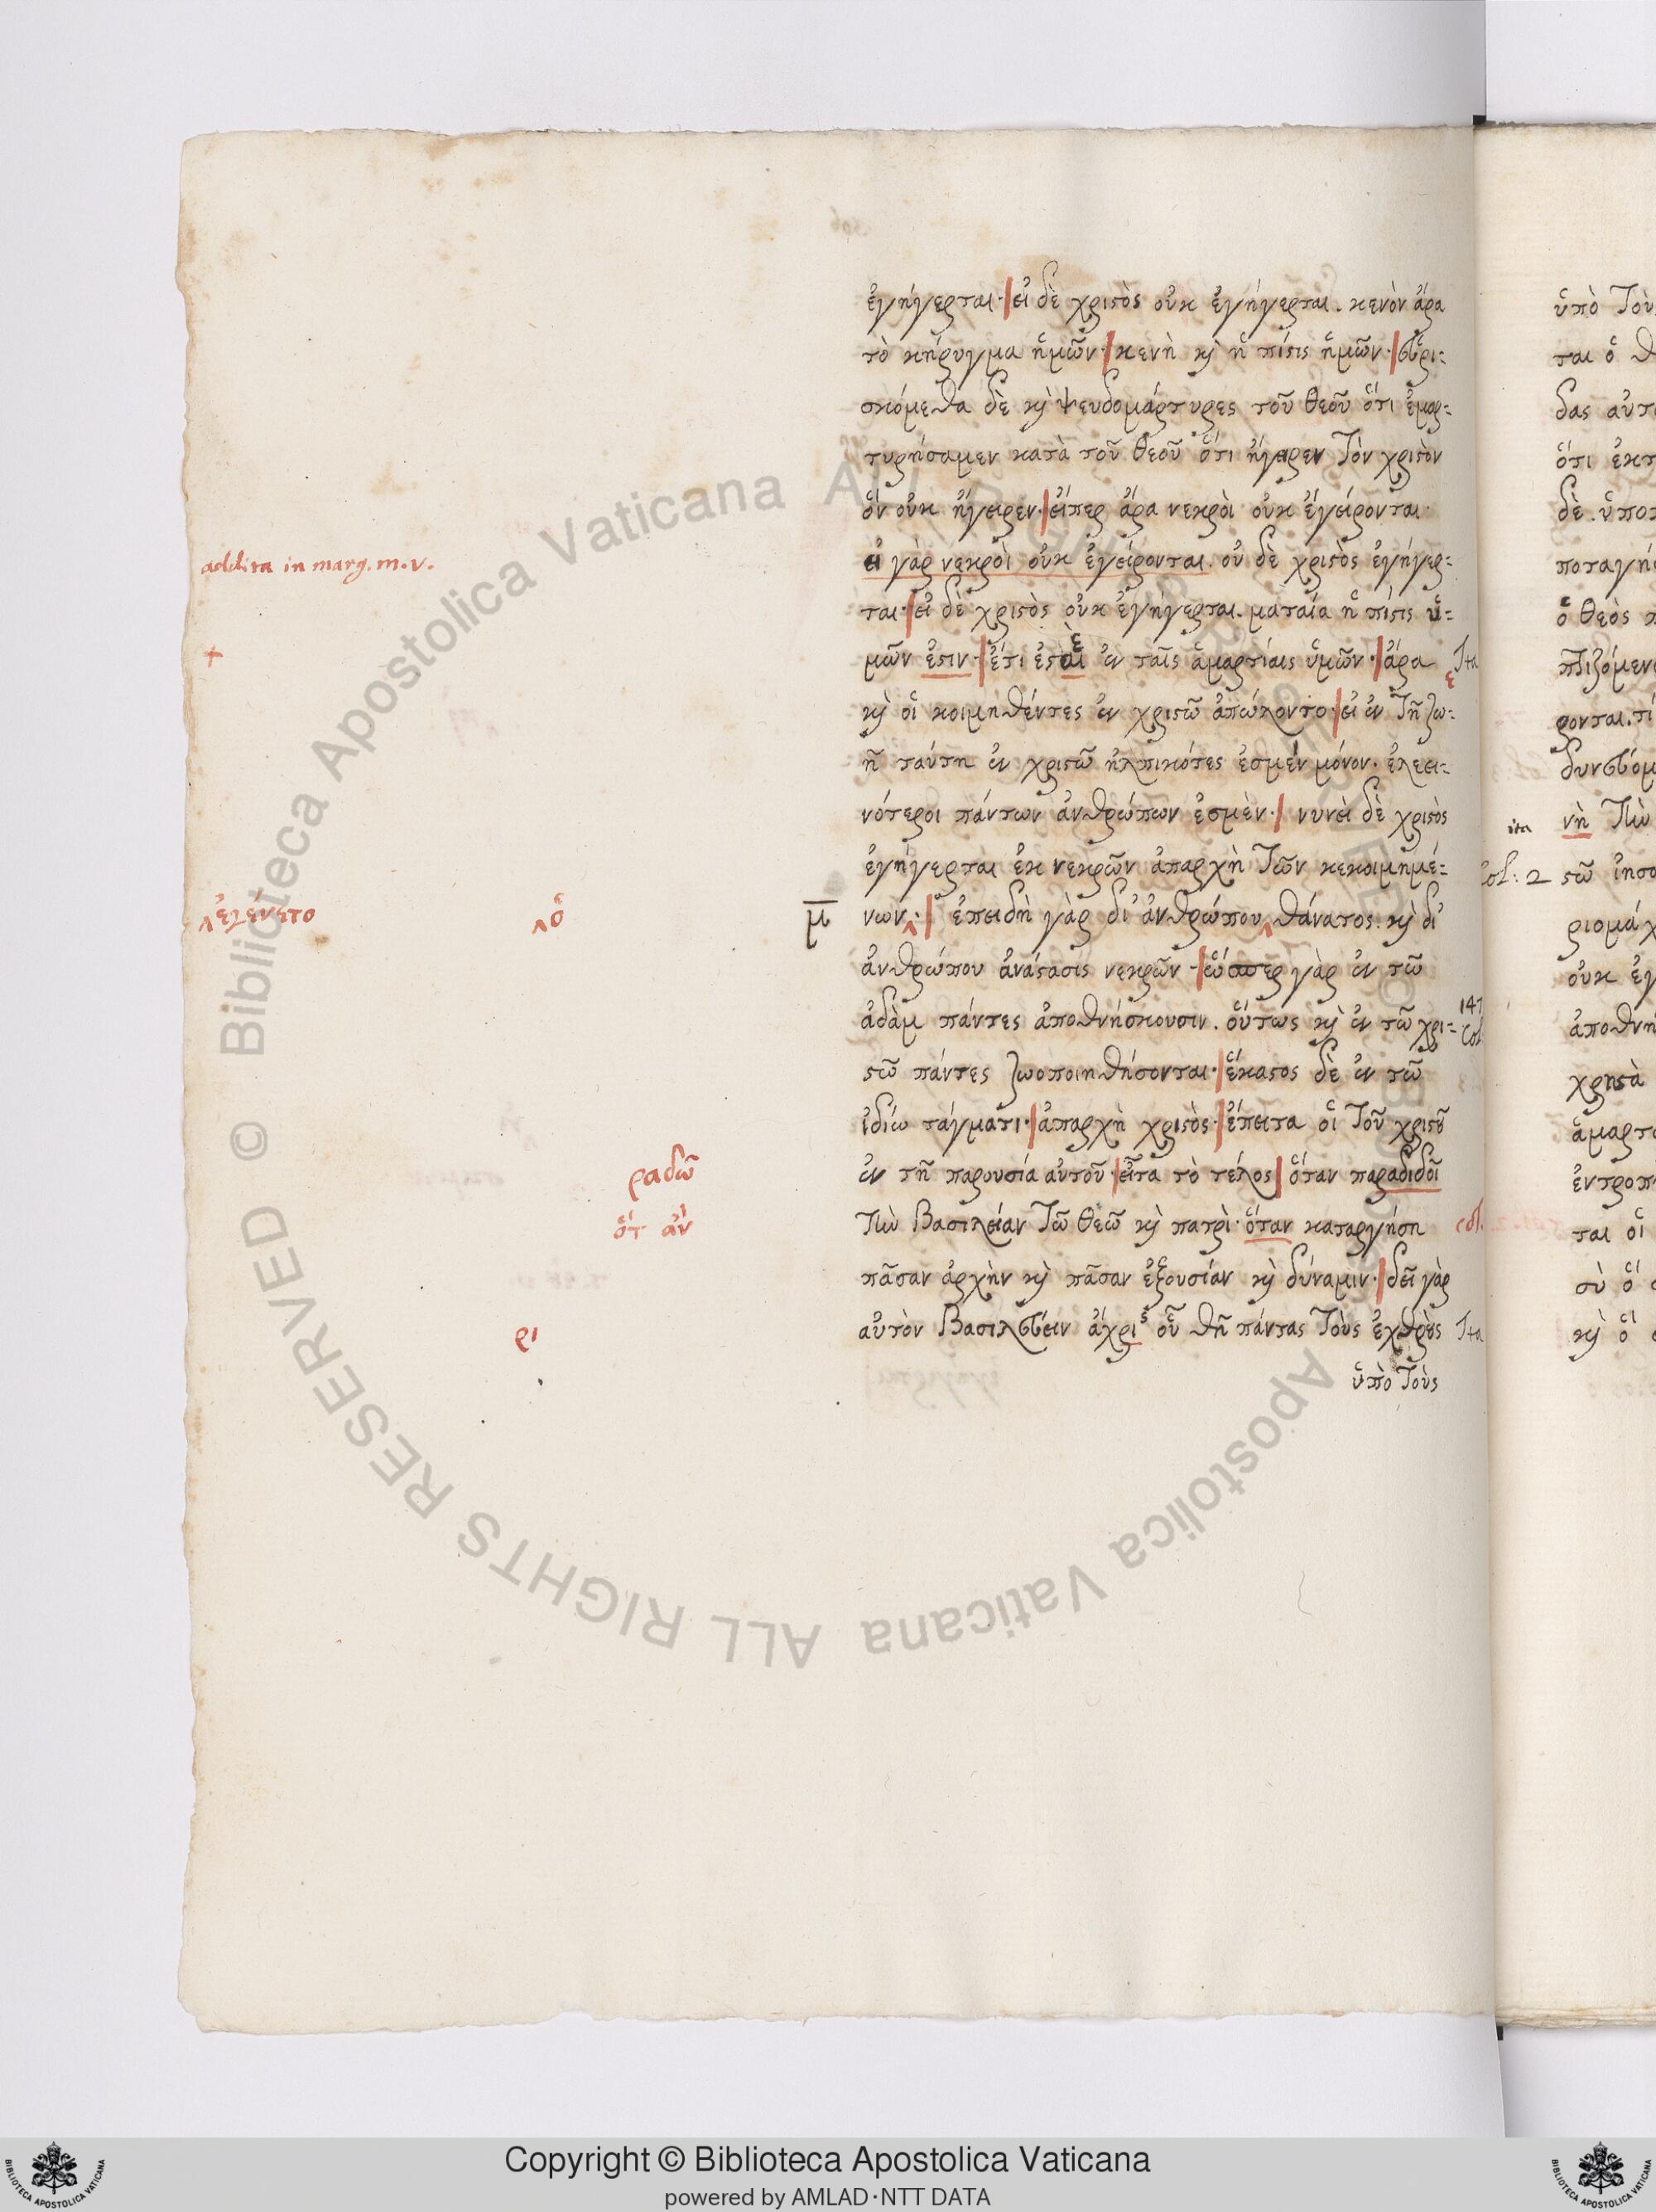 ἐγήγερται· εἰ δὲ χριστὸς οὐκ ἐγήγερται. κενὸν ἄρα
τὸ κήρυγμα ἡμῶν· κενὴ κỳ ἡ πίστις ἡμῶν· εὑρι=
σκόμεθα δὲ κỳ ψευδομάρτυρες τοῦ θεοῦ ὅτι ἐμαρ=
τυρήσαμεν κατὰ τοῦ θεοῦ ὅτι ἤγειρεν τὸν χριστὸν
ὃν οὐκ ἤγειρεν· εἴπερ ἄρα νεκρὸι οὐκ ἐγείρονται·
additta in marg. m. v.
εἰ γὰρ νεκρὸι οὐκ ἐγείρονται. οὐ δὲ χριστὸς ἐγήγερ=
ται· εἰ δὲ χριστὸς οὐκ ἐγήγερται. ματαία ἡ πίστις ὑ=
+
μῶν ἐστιν· ἔτι ἐσταὶ ἐν ταῖς ἁμαρτίαις ὑμῶν· ἄρα Ita
ε
κỳ οἱ κοιμηθέντες ἐν χριστῶ ἀπώλοντο· εἰ ἐν τῆ ζω=
ῆ ταύτη ἐν χριστῶ ἠλπικότες ἐσμέν μόνον. ἐλεει=
νότεροι πάντων ἀνθρώπων ἐσμὲν· νυνεὶ δὲ χριστὸς
ἐγήγερται ἐκ νεκρῶν ἀπαρχὴ τῶν κεκοιμημέ=
^ἐγένετο ^ὁ
μ̅ νων^· ἐπειδὴ γὰρ δι' ἀνθρώπου ^θάνατος. κỳ δι'
ἀνθρώπου ἀνάστασις νεκρῶν· ὥσπερ γὰρ ἐν τῶ
ἀδὰμ πάντες ἀποθνήσκουσιν. οὕτως κỳ ἐν τῶ χρι= 147 Col
στῶ πάντες ζωοποιηθήσονται· ἕκαστος δὲ ἐν τῶ
ἰδίω τάγματι· ἀπαρχὴ χριστὸς· ἔπειτα οἱ τοῦ χριστοῦ
ραδῶ
ἐν τῆ παρουσία αὐτοῦ· εἶτα τὸ τέλος ὅταν παραδιδοῖ
ὅτ ἀν
τὴν βασιλείαν τῶ θεῶ κỳ πατρὶ· ὅταν καταργήση col.
πᾶσαν ἀρχὴν κỳ πᾶσαν ἐξουσίαν κỳ δύναμιν· δεῖ γὰρ
ρι
αὐτὸν βασιλεύειν ἄχρις οὗ θῆ πάντας τοὺς ἐχθροὺς Ita
ὑπὸ τοὺς
ὑπὸ τοὺ
ται ὁ θ
δας αὐτ
ὅτι ἐκτ
δὲ. ὑποτ
ποταγή
ὁ θεὸς
πτιζόμεν
ρονται. τί
δυνεύομ
ita νὴ τὴν
Col: 2 σῶ ἰησο
ριομάχ
οὐκ ἐγ
ἀποθνή
χρηστὰ
ἁμαρτ
ἐντροπ
ται οἱ
σὺ ὃ
κỳ ὃ
© Biblioteca Apostolica Vaticana ALL RIGHTS RESERVED
Copyright © Biblioteca Apostolica Vaticana
powered by AMLAD·NTT DATA
BIBLIOTECA APOSTOLICA VATICANA
BIBLIOTECA APOSTOLICA VATICANA